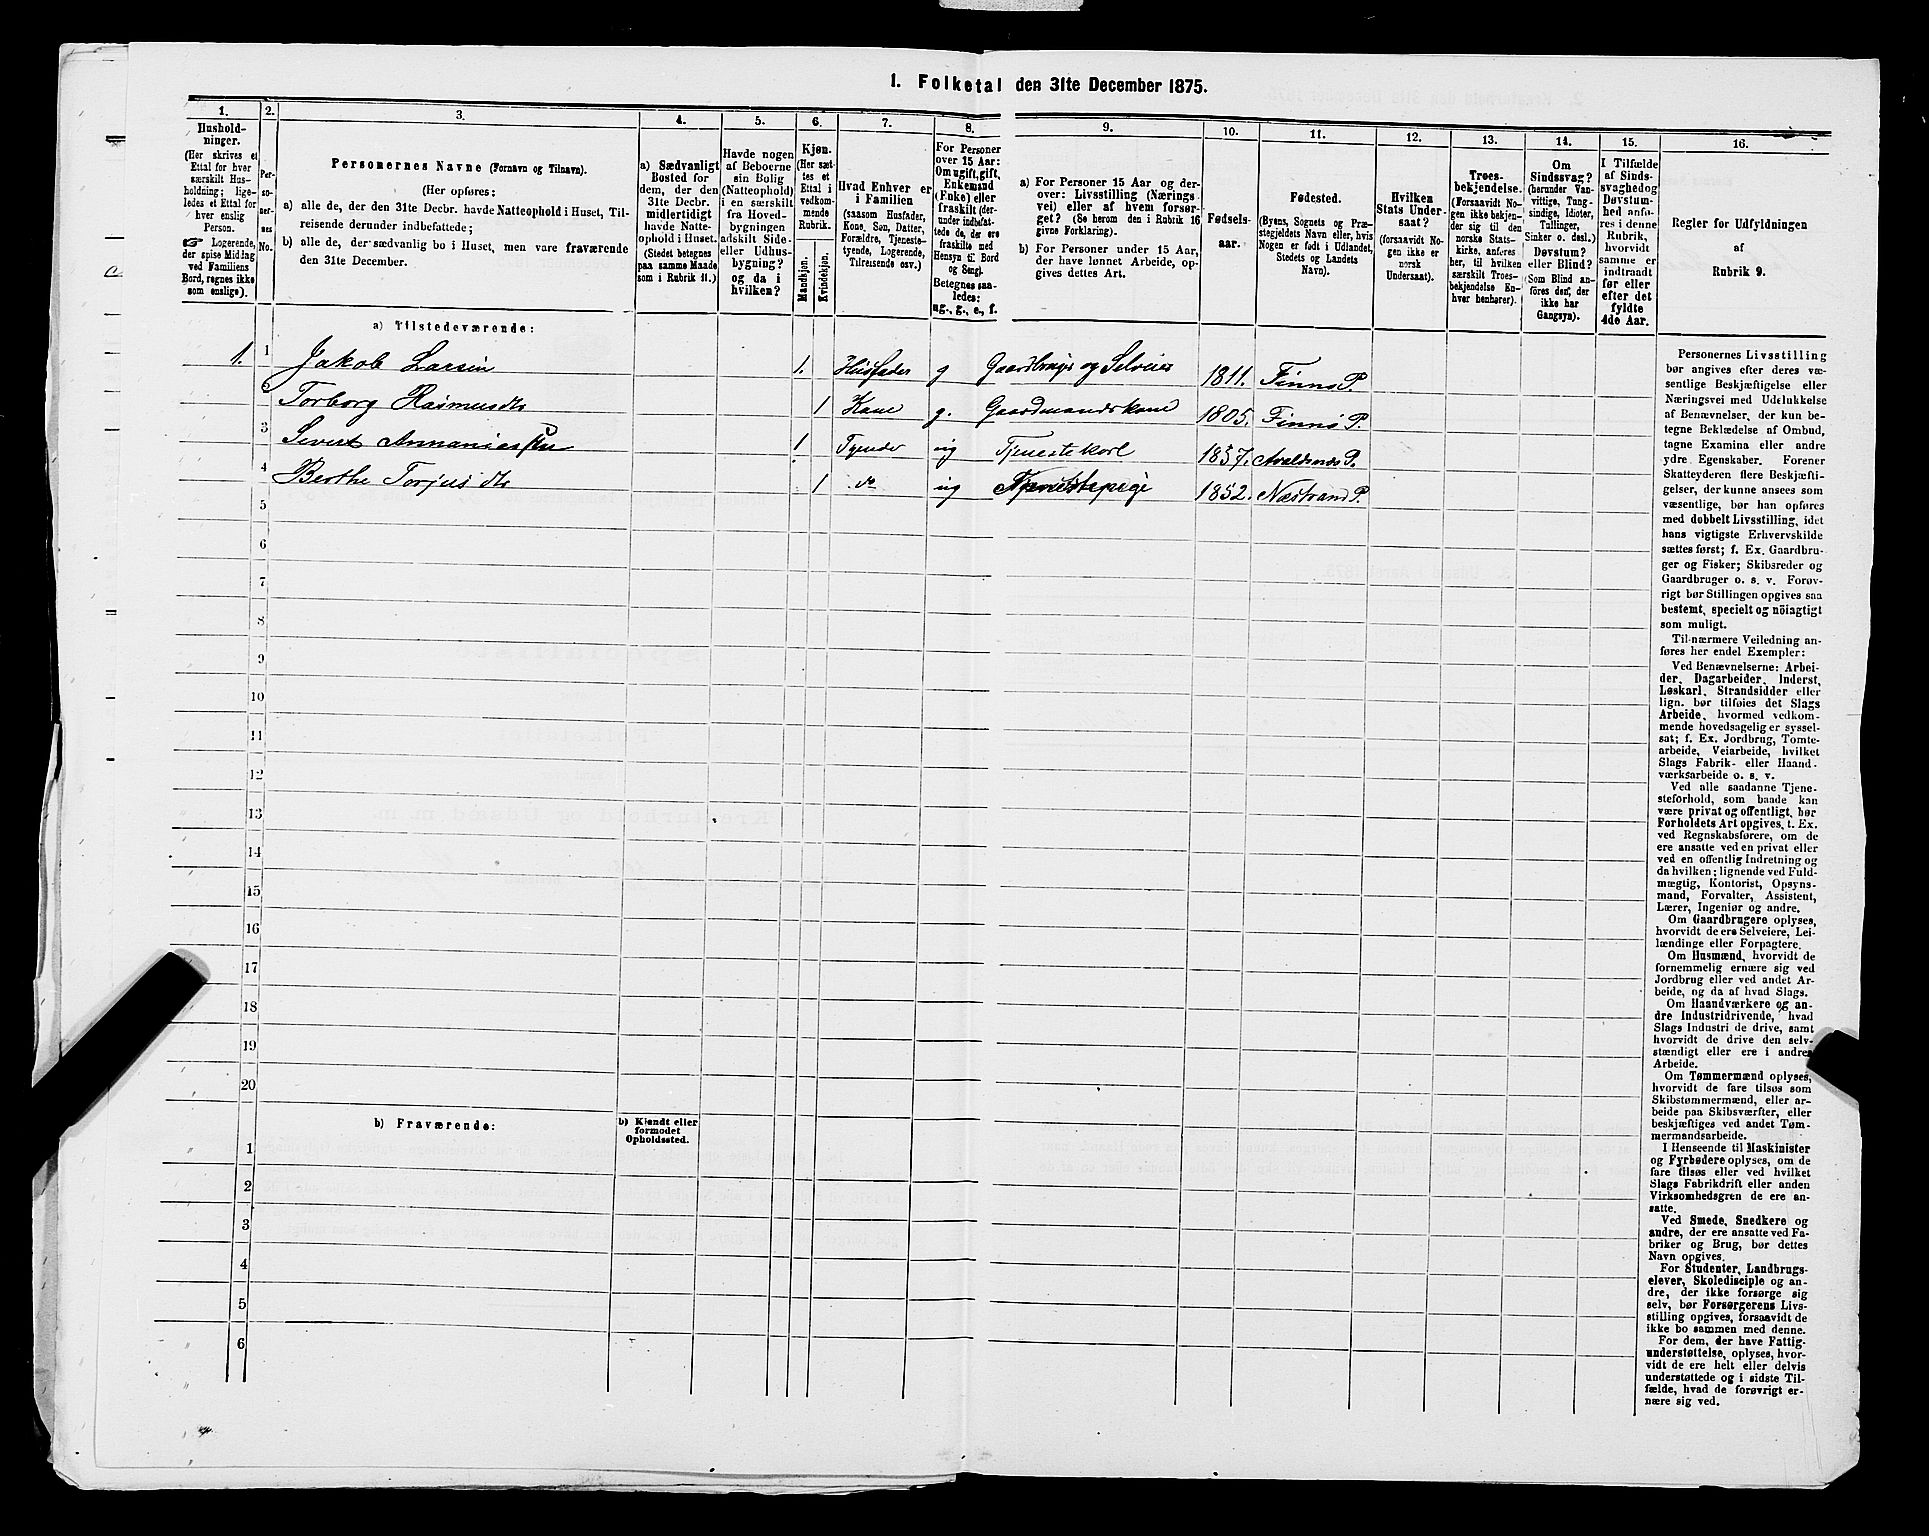 1. Folketal den 31te December 1875.
1. 2. 3. 4. 5. 6. 7. 8. 9. 10. 11. 12. 13. 14. 15. 16.
Hushold-
ninger.
(Her skrives et
Ettal for hver
særskilt Hus-
holdning; lige-
ledes et Ettal for
hver enslig
Person.
☞ Logerende,
der spise Middag
ved Familiens
Bord, regnes ikke
som enslige).
Per-
so-
ner-
nes
No.
Personernes Navne (Fornavn og Tilnavn).
(Her opføres:
a) alle de, der den 31te Decbr. havde Natteophold i Huset, Til-
reisende derunder indbefattede;
b) alle de, der sædvanlig bo i Huset, men vare fraværende
den 31te December.
a) Sædvanligt
Bosted for
dem, der den
31te Decbr.
midlertidigt
havde Natte-
ophold i Huset.
(Stedet betegnes
paa samme Maade
som i Rubrik 11.)
Havde nogen
af Beboerne
sin Bolig
(Natteophold)
i en særskilt
fra Hoved-
bygningen
adskilt Side-
eller Udhus-
bygning?
og da i
hvilken?
Kjøn.
(Her sæt-
tes et
Ettal i
vedkom-
mende
Rubrik.
Mandkjøn.
Kvindekjøn.
Hvad Enhver er
i Familien
(saasom Husfader,
Kone, Søn, Datter,
Forældre, Tjeneste-
tyende, Logerende,
Tilreisende osv.)
For Personer
over 15 Aar:
Om ugift, gift,
Enkemand
(Enke) eller
fraskilt (der-
under indbefat-
tede de, der ere
fraskilte med
Hensyn til Bord
og Seng).
Betegnes saa-
ledes:
ug., g., e., f.
a) For Personer 15 Aar og der-
over: Livsstilling (Nærings-
vei) eller af hvem forsør-
get? (Se herom den i Rubrik 16
givne Forklaring).
b) For Personer under 15 Aar,
der have lønnet Arbeide, op-
gives dettes Art.
Fødsels-
aar.
Fødested.
(Byens, Sognets og Præ-
stegjeldets Navn eller, hvis
Nogen er født i Udlandet,
Stedets og Landets
Navn).
Hvilken
Stats Under-
saat?
(forsaavidt No-
gen ikke er
norsk
Undersaat).
Troes-
bekjendelse.
(Forsaavidt No-
gen ikke bekjen-
der sig til den
norske Stats-
kirke, anføres
her, til hvilken
særskilt Troes-
bekjendelse En-
hver henhører).
Om
Sindssvag?
(herunder Van-
vittige, Tung-
sindige, Idioter,
Tullinger,
Sinker o. desl.)
Døvstum?
eller Blind?
(Som Blind an-
føres den, der
ikke har
Gangsyn).
I Tilfælde
af Sinds-
svaghed og
Døvstum-
hed anfø-
res i denne
Rubrik,
hvorvidt
samme er
indtraadt
før eller
efter det
fyldte
4de Aar.
Regler for Udfyldningen
af
Rubrik 9.
a) Tilstedeværende:
1. 1 Jakob Larsen 1. Husfader g Gaardbruger og Selveier 1811. Finnø P.
2 Torborg Rasmusdtr 1 Kone g. Gaardmandskone 1805. Finnø P.
3 Sivert Ammanias 1 Tyende ug Tjenestekarl 1857. Avaldsnæs P.
4 Berthe Torjusdtr 1 do ug Tjenestepige 1852. Nærstrand P.
5
6
7
8
9
10
11
12
13
14
15
16
17
18
19
20
b) Fraværende:
b) Kjendt eller
formodet
Opholdssted.
1
2
3
4
5
6
Personernes Livsstilling
bør angives efter deres væ-
sentlige Beskjæftigelse eller
Næringsvei med Udelukkelse
af Benævnelser, der kun be-
tegne Beklædelse af Ombud,
tagne Examina eller andre
ydre Egenskaber. Forener
Skatteyderen flere Beskjæfti-
gelser, der kunne ansees som
væsentlige, bør han opføres
med dobbelt Livsstilling, idet
hans vigtigste Erhvervskilde
sættes først; f. Ex. Gaardbru-
ger og Fisker; Skibsreder og
Gaardbruger o. s. v. Forøv-
rigt bør Stillingen opgives saa
bestemt, specielt og nöiagtigt
som muligt.
Til nærmere Veiledning an-
føres her endel Exempler:
Ved Benævnelserne: Arbei-
der, Dagarbeider, Inderst,
Løskarl, Strandsidder eller
lign. bør tilføies det Slags
Arbeide, hvormed vedkom-
mende hovedsagelig er syssel-
sat; f. Ex. Jordbrug, Tomte-
arbeide, Veiarbeide, hvilket
Slags Fabrik- eller Haand-
værksarbeide o. s. v.
Ved alle saadanne Tjene-
steforhold, som baade kan
være privat og offentligt, bør
Forholdets Art opgives, t. Ex.
ved Regnskabsførere, om de
ere ansatte ved en privat eller
ved en offentlig Indretning og
da hvilken; lignende ved Fuld-
mægtig, Kontorist, Opsyns-
mand, Forvalter, Assistent,
Lærer, Ingeniør og andre.
Om Gaardbrugere oplyses,
hvorvidt de ere Selveiere, Lei-
lændinge eller Forpagtere.
Om Husmænd, hvorvidt de
fornemmelig ernære sig ved
Jordbrug eller ved andet Ar-
beide, og da af hvad Slags.
Om Haandværkere og an-
dre Industridrivende, hvad
Slags Industri de drive, samt
hvorvidt de drive den selv-
stændigt eller ere i andres
Arbeide.
Om Tømmermænd oplyses,
hvorvidt de fare tilsøs som
Skibstømmermænd, eller ar-
beide paa Skibsværfter, eller
beskjæftiges ved andet Tøm-
mermandsarbeide.
I Henseende til Maskinister
og Fyrbødere oplyses, om de
fare tilsøs eller ved hvilket
Slags Fabrikdrift eller anden
Virksomhedsgren de ere an-
satte.
Ved Smede, Snedkere og
andre, der ere ansatte ved Fa-
briker og Brug, bør dettes
Navn opgives.
For Studenter, Landbrugs-
elever, Skoledisciple og an-
dre, der ikke forsørge sig
selv, bør Forsørgerens Livs-
stilling opgives, forsaavidt de
ikke bo sammen med denne.
For dem, der have Fattig-
understøttelse, oplyses, hvor-
vidt de ere helt eller delvis
understøttede og i sidste Til-
fælde, hvad de forøvrigt er-
nære sig ved.